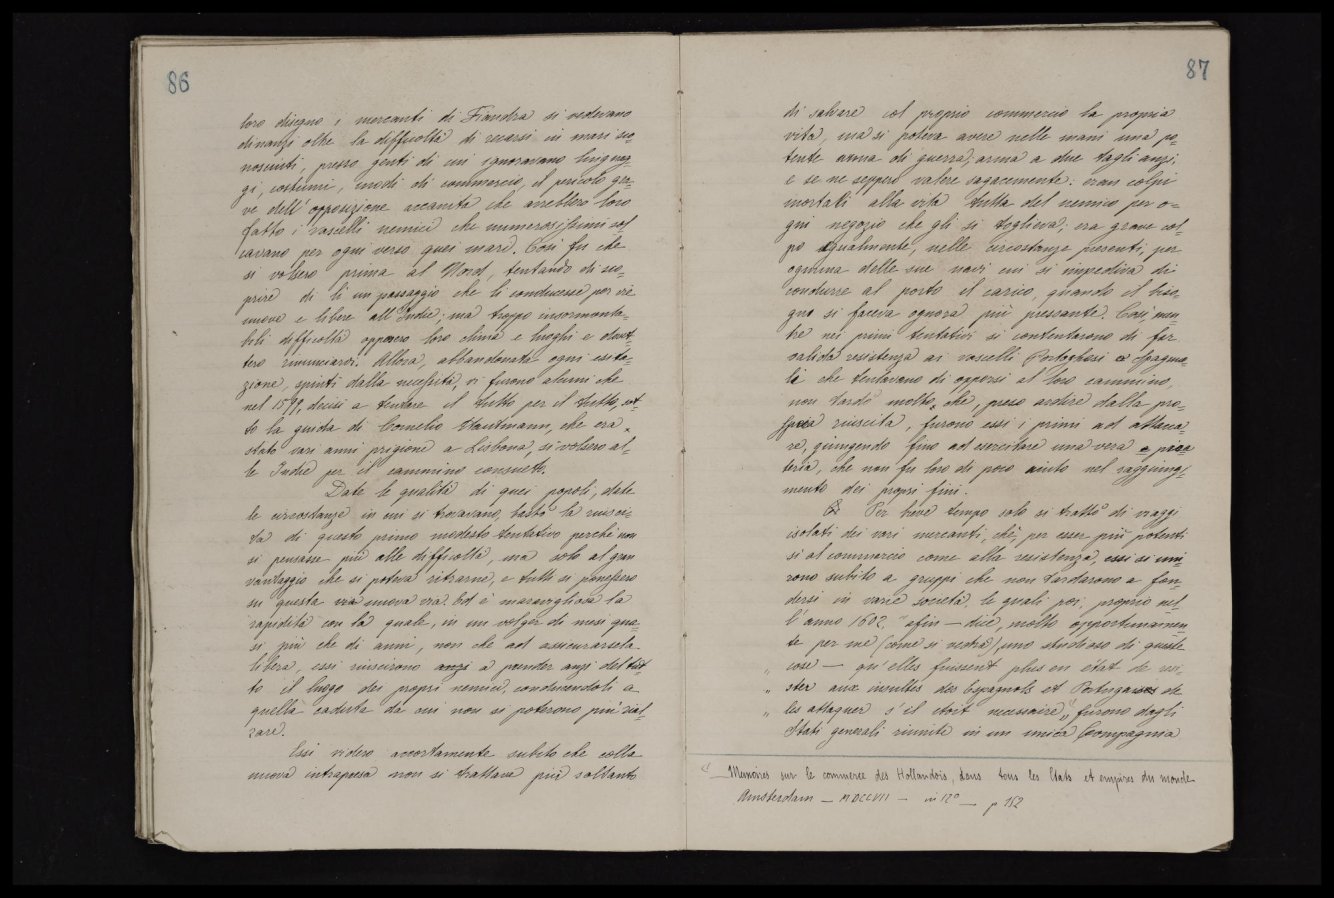 86
loro disegno i mercanti di Fiandra si vedevano
dinanzi oltre la difficoltà di recarsi in mari sco=
nosciuti, presso genti di cui ignoravano linguag=
gi, costumi, modi di commercio, il pericolo gra=
ve dell'opposizione accanita che avrebbero loro
fatto i vascelli nemici che numerosissimi sol=
cavano per ogni verso quei mari. Così fu che
si volsero prima al Nord, tentando di sco=
prire di lì un passaggio che li conducesse per vie
nuove e libere all'Indie: ma troppo insormonta=
bili difficoltà opposero loro clima e luoghi e dovet=
tero rinunciarvi. Allora, abbandonata ogni esita=
zione, spinti dalla necessità, vi furono alcuni che
nel 1599, decisi a tentare il tutto per il tutto, sot=
to la guida di Cornelio Hautmann, che era
stato vari anni prigione a Lisbona, si volsero al=
le Indie per il cammino consueto.
Date le qualità di quei popoli, date
le circostanze in cui si trovavano, bastò la riusci=
ta di questo primo modesto tentativo perchè non
si pensasse più alle difficoltà, ma solo al gran
vantaggio che si poteva ritrarne, e tutti si ponessero
su questa via nuova via. Ed è maravigliosa la
rapidità con la quale, in un volger di mesi qua=
si, più che di anni, non che ad assicurarsela
libera, essi riuscirono anzi a prender anzi del tut=
to il luogo dei propri nemici, conducendoli a
quella caduta da cui non si poterono più rial=
zare.
Essi videro accortamente subito che colla
nuova intrapresa non si trattava più soltanto
87
di salvare col proprio commercio la propria
vita, ma si poteva avere nelle mani una po=
tente arma di guerra; arma a due tagli anzi;
e se ne seppero valere sagacemente: eran colpi
mortali alla vita tutta del nemico per o=
gni negozio che gli si toglieva; era grave col=
po egualmente, nelle circostanze presenti, per
ognuna delle sue navi cui si impediva di
condurre al porto il carico, quando il biso=
gno si faceva ognora più pressante. Così men
tre nei primi tentativi si contentarono di far
valida resistenza ai vascelli Portoghesi e Spagnuo=
li che tentavano di opporsi al loro cammino,
non tardò molto che, preso ardire dalla pro=
spera riuscita, furono essi i primi ad attacca=
re, giungendo fino ad esercitare una vera e pira
teria, che non fu loro di poco aiuto nel raggiungi=
mento dei propri fini.
Per breve tempo solo si trattò di viaggi
isolati dei vari mercanti, chè, per esser più potenti
sì al commercio come alla resistenza, essi si uni=
rono subito a gruppi che non tardarono a fon=
dersi in varie società, le quali poi, proprio nel=
l'anno 1602, "afin — dice, molto opportunamen=
te per me (come si vedrà) uno studioso di queste
„ cose — qu'elles fussent plus en état de resi=
„ ster aux insultes des Espagnols et Portugaises de
„ les attaquer s'il etoit necessaire„ furono dagli
Stati generali riunite in un unica Compagnia
Memoires sur le commerce des Hollandois, dans tous les Etats et empires du monde
Amsterdam — MDCCVII — in 12° — p 152